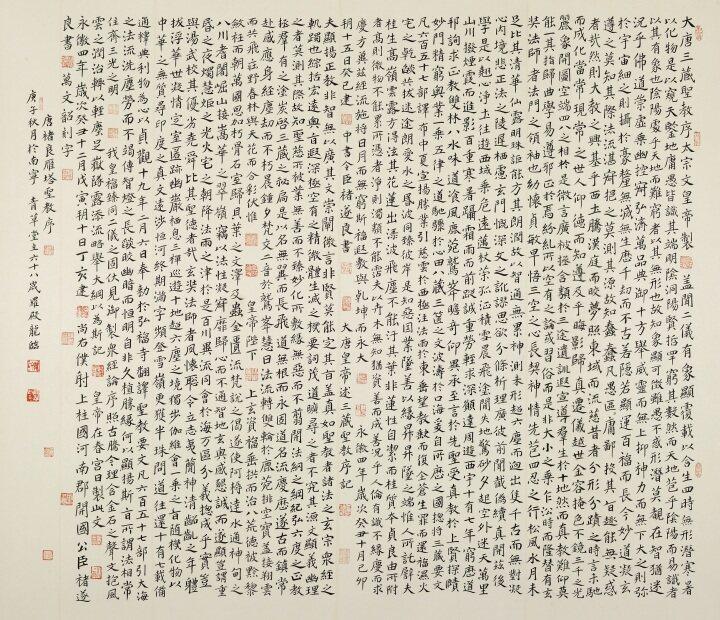 大唐三藏聖教序 太宗文皇帝製 蓋聞二儀有象顯覆載以含生四時無形潛寒暑
以化物是以窺天鑒地庸愚皆識其端明陰洞陽賢哲罕窮其數然而天地苞乎陰陽而易識者
以其有象也陰陽處乎天地而難窮者以其無形也故知象顯可徵雖愚不惑形潛莫覩在智猶迷
況乎佛道崇虛乘幽控寂弘濟萬品典御十方舉威靈而無上抑神力而無下大之則弥
於宇宙細之則攝於豪釐無滅無生歷千劫而不古若隱若顯運百福而長今妙道凝玄
遵之莫知其際法流湛寂挹之莫測其源故知蠢蠢凡愚區區庸鄙投其旨趣能無疑惑
者哉然則大教之興基乎西土騰漢庭而皎夢照東域而流慈昔者分形分跡之時言未馳
而成化當常現常之世人仰德而知遵及乎晦影歸真遷儀越世金容掩色不鏡三千之光
麗象開圖空端四八之相於是微言廣被拯含類於三途遺訓遐宣導群生於十地然而真教難仰莫
能一其指歸曲學易遵邪正於焉紛糾所以空有之論或習俗而是非大小之乘乍沿時而隆替有玄
奘法師者法門之領袖也幼懷貞敏早悟三空之心長契神情先苞四忍之行松風水月未
足比其清華仙露明珠詎能方其朗潤故以智通無累神測未形超六塵而迥出隻千古而無對凝
心內境悲正法之陵遲栖慮玄門慨深文之訛謬思欲分條析理廣彼前聞截偽續真開茲後
學是以翹心淨土往遊西域乘危遠邁杖策孤征積雪晨飛途間失地驚砂夕起空外迷天萬里
山川撥煙霞而進影百重寒暑躡霜雨而前蹤誠重勞輕求深願達周遊西宇十有七年窮歷道
邦詢求正教雙林八水味道飡風鹿菀鷲峯瞻奇仰異承至言於先聖受真教於上賢探賾
妙門精窮奧業一乘五律之道馳驟於心田八藏三篋之文波濤於口海爰自所歷之國摠將三藏要文
凡六百五十七部譯布中夏宣揚勝業引慈雲於西極注法雨於東垂聖教缺而復全蒼生罪而還福濕火
宅之乾燄共拔迷途朗愛水之昏波同臻彼岸是知惡因業墜善以緣昇昇墜之端惟人所託譬夫
桂生高嶺雲露方得泫其花蓮出淥波飛塵不能汙其葉非蓮性自潔而桂質本貞良由所附
者高則微物不能累所憑者淨則濁類不能霑夫以卉木無知猶資善而成善況乎人倫有識不緣慶而求
慶方冀茲經流施將日月而無窮斯福遐敷與乾坤而永大 永徽四年歲次癸丑十月己卯
朔十五日癸巳建 中書令臣褚遂良書 大唐皇帝述三藏聖教序記
夫顯揚正教非智無以廣其文崇闡微言非賢莫能定其旨蓋真如聖教者諸法之玄宗眾經之
軌躅也綜括宏遠奧旨遐深極空有之精微體生滅之機要詞茂道曠尋之者不究其源文顯義幽理
之者莫測其際故知聖慈所被業無善而不臻妙化所敷緣無惡而不翦開法網之綱紀弘六度之正教
拯群有之塗炭啟三藏之秘扃是以名無翼而長飛道無根而永固道名流慶歷遂古而鎮常
赴感應身經塵劫而不朽晨鍾夕梵交二音於鷲峯慧日法流轉雙輪於鹿菀排空寶蓋接翔雲
而共飛莊野春林與天花而合彩伏惟 皇帝陛下 上玄資福垂拱而治八荒德被黔黎
斂衽而朝萬國恩加朽骨石室歸貝葉之文澤及昆蟲金匱流梵說之偈遂使阿耨達水通神甸之
八川耆闍崛山接嵩華之翠嶺竊以法性凝寂靡歸心而不通智地玄奧感懇誠而遂顯豈謂重
昏之夜燭慧炬之光火宅之朝降法雨之澤於是百川異流同會於海萬區分義摠成乎實豈
與湯武校其優劣堯舜比其聖德者哉玄奘法師者夙懷聰令立志夷簡神清齠齔之年體
拔浮華之世凝情定室匿跡幽巖栖息三禪巡遊十地超六塵之境獨步伽維會一乘之旨隨機化物以
中華之無質尋印度之真文遠涉恒河終期滿字頻登雪嶺更獲半珠問道往還十有七載備
通釋典利物為心以貞觀十九年二月六日奉勑於弘福寺翻譯聖教要文凡六百五十七部引大海
之法流洗塵勞而不竭傳智燈之長燄皎幽闇而恒明自非久植勝緣何以顯揚斯旨所謂法相常
住齊三光之明 我皇福臻同二儀之固伏見御製眾經論序照古騰今理含金石之聲文抱風
雲之潤治輒以輕塵足嶽墜露添流略舉大綱以為斯記 皇帝在春宮日製此文
永徽四年歲次癸丑十二月戊寅朔十日丁亥建 尚右僕射上柱國河南郡開國公臣褚遂
良書 萬文韶刻字
唐褚遂良雁塔聖教序
庚子秋月於南寧 青草堂主六十八歲羅殿龍臨